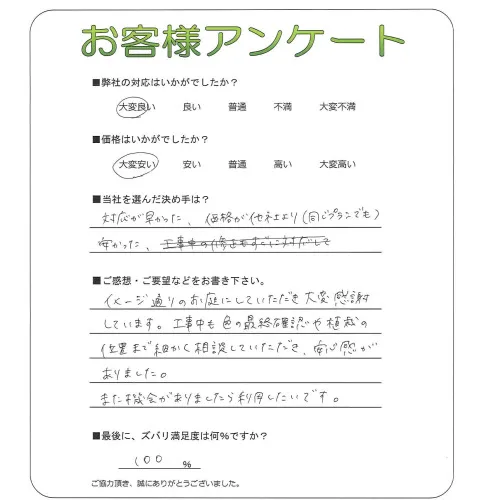 お客様アンケート
■弊社の対応はいかがでしたか？
大変良い 良い 普通 不満 大変不満
■価格はいかがでしたか？
大変安い 安い 普通 高い 大変高い
■当社を選んだ決め手は？
対応が早かった、価格が他社より(同じプランでも)
安かった、工事中の修正もすぐに対応して
■ご感想・ご要望などをお書き下さい。
イメージ通りのお庭にしていただき大変感謝
しています。工事中も色の最終確認や植栽の
位置まで細かく相談していただき、安心感が
ありました。
また機会がありましたら利用したいです。
■最後に、ズバリ満足度は何%ですか？
100 %
ご協力頂き、誠にありがとうございました。